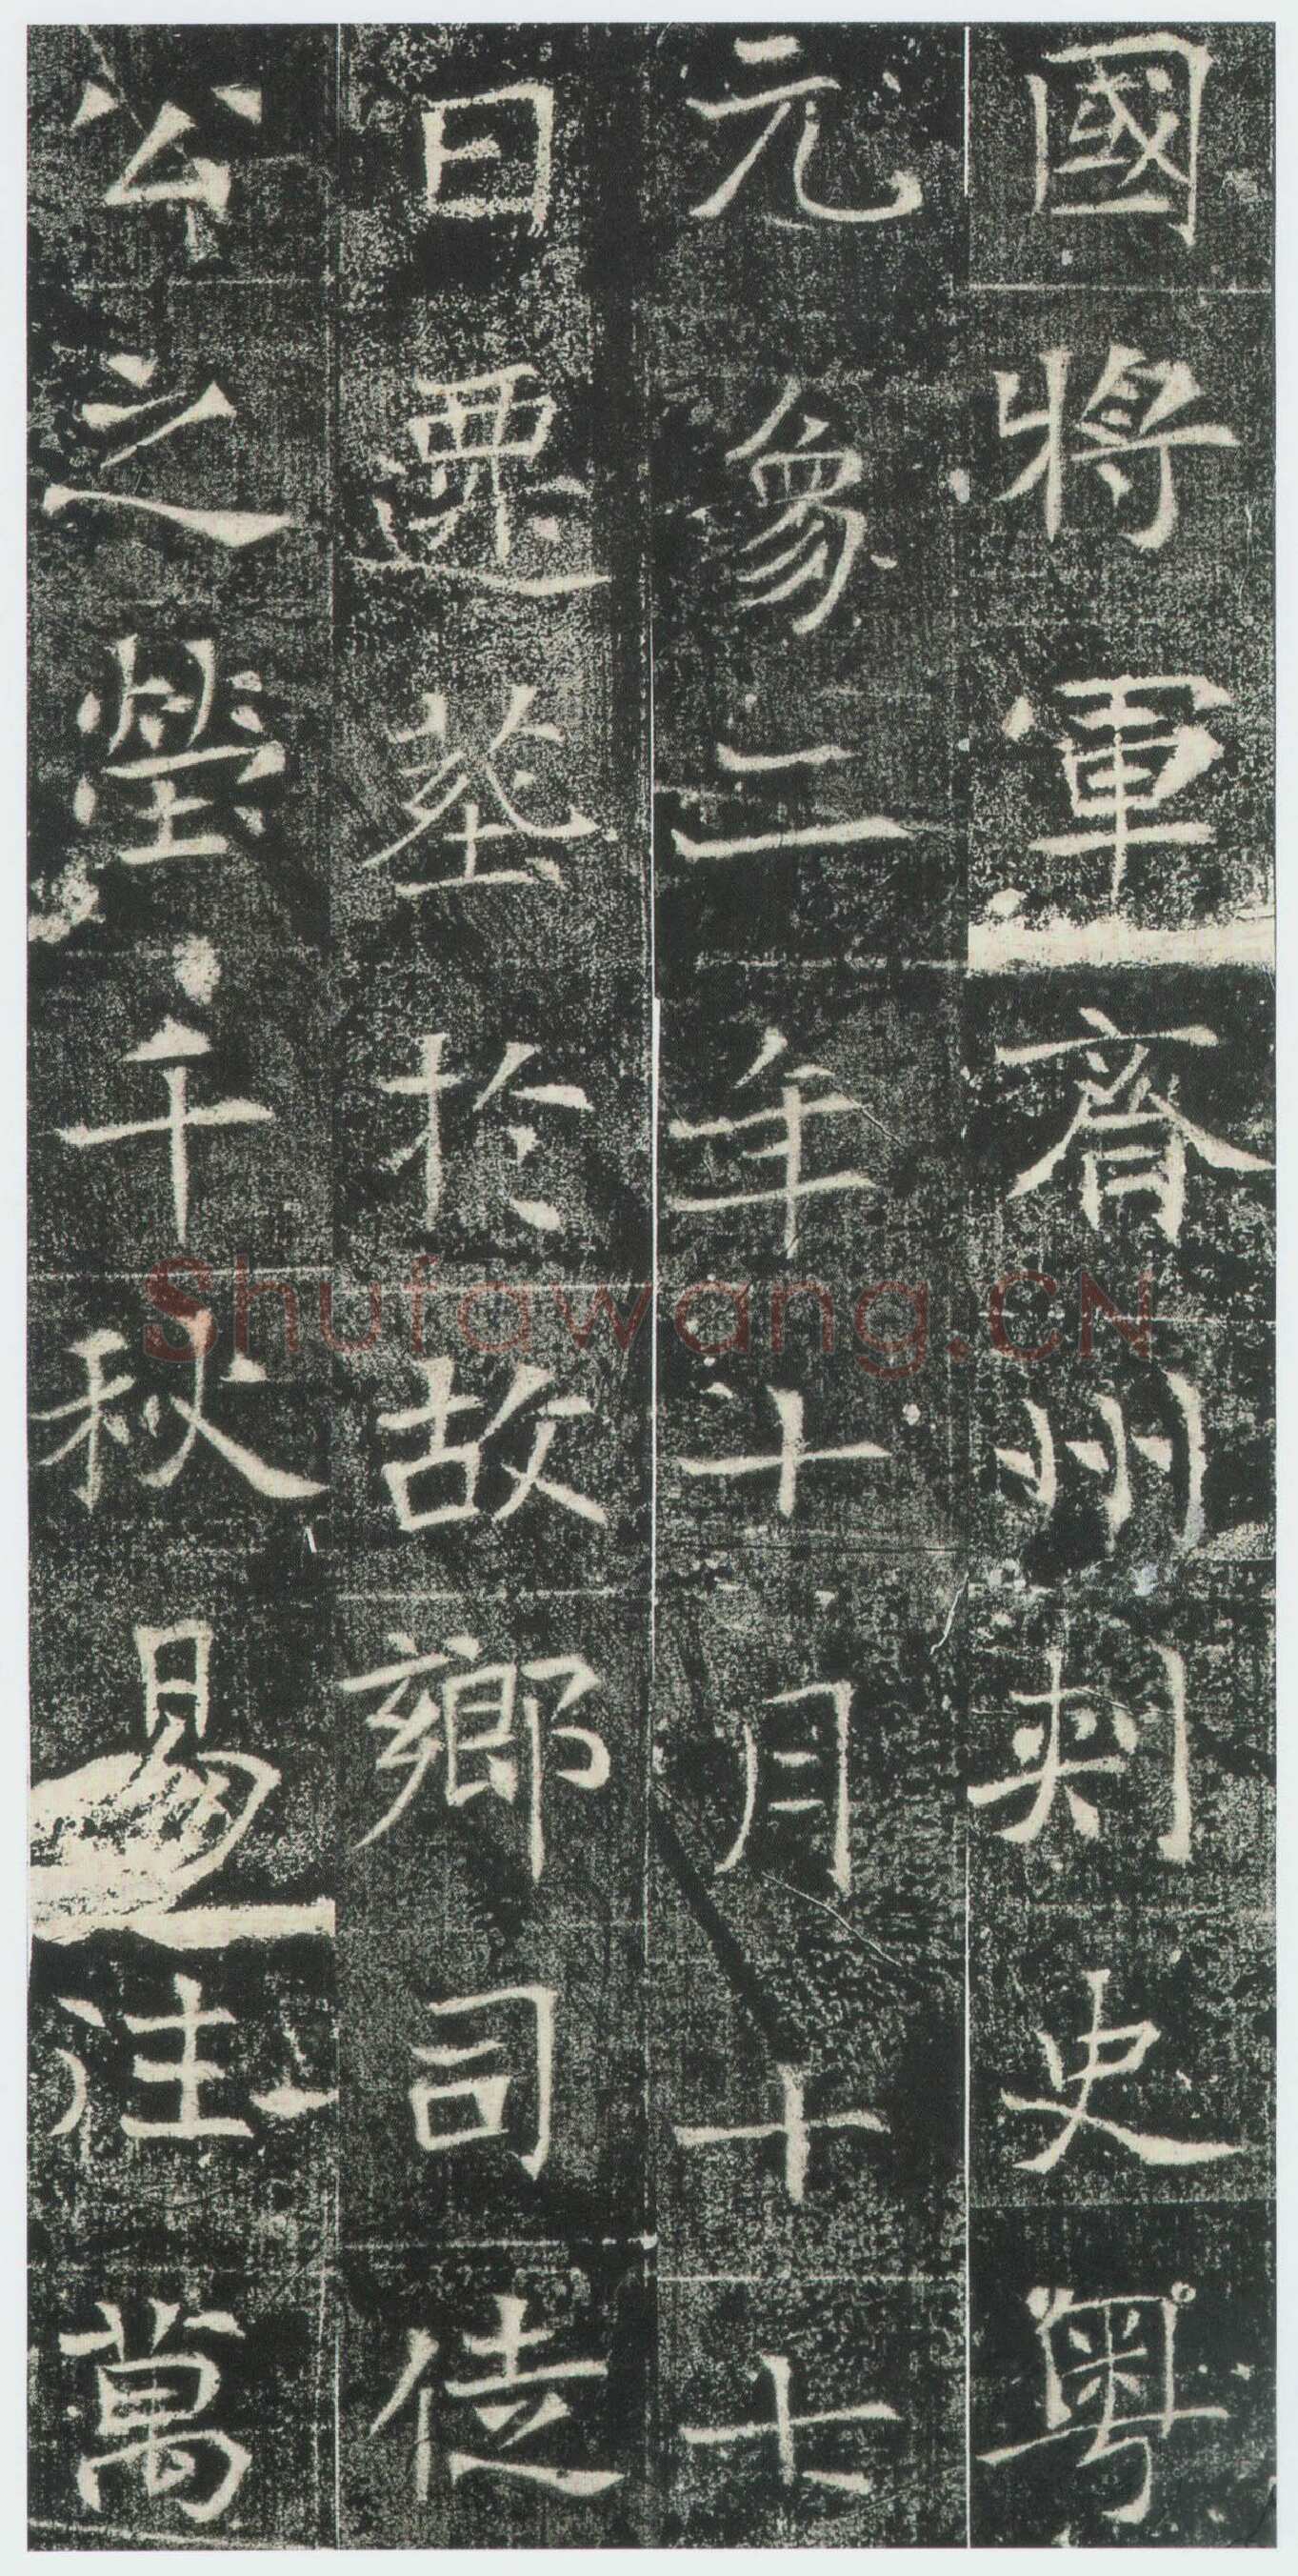 國將軍齊州刾史粵
元象二年十月十七
日遷葬於故鄉司徒
公之塋千秋易往萬
Shufawang.CN